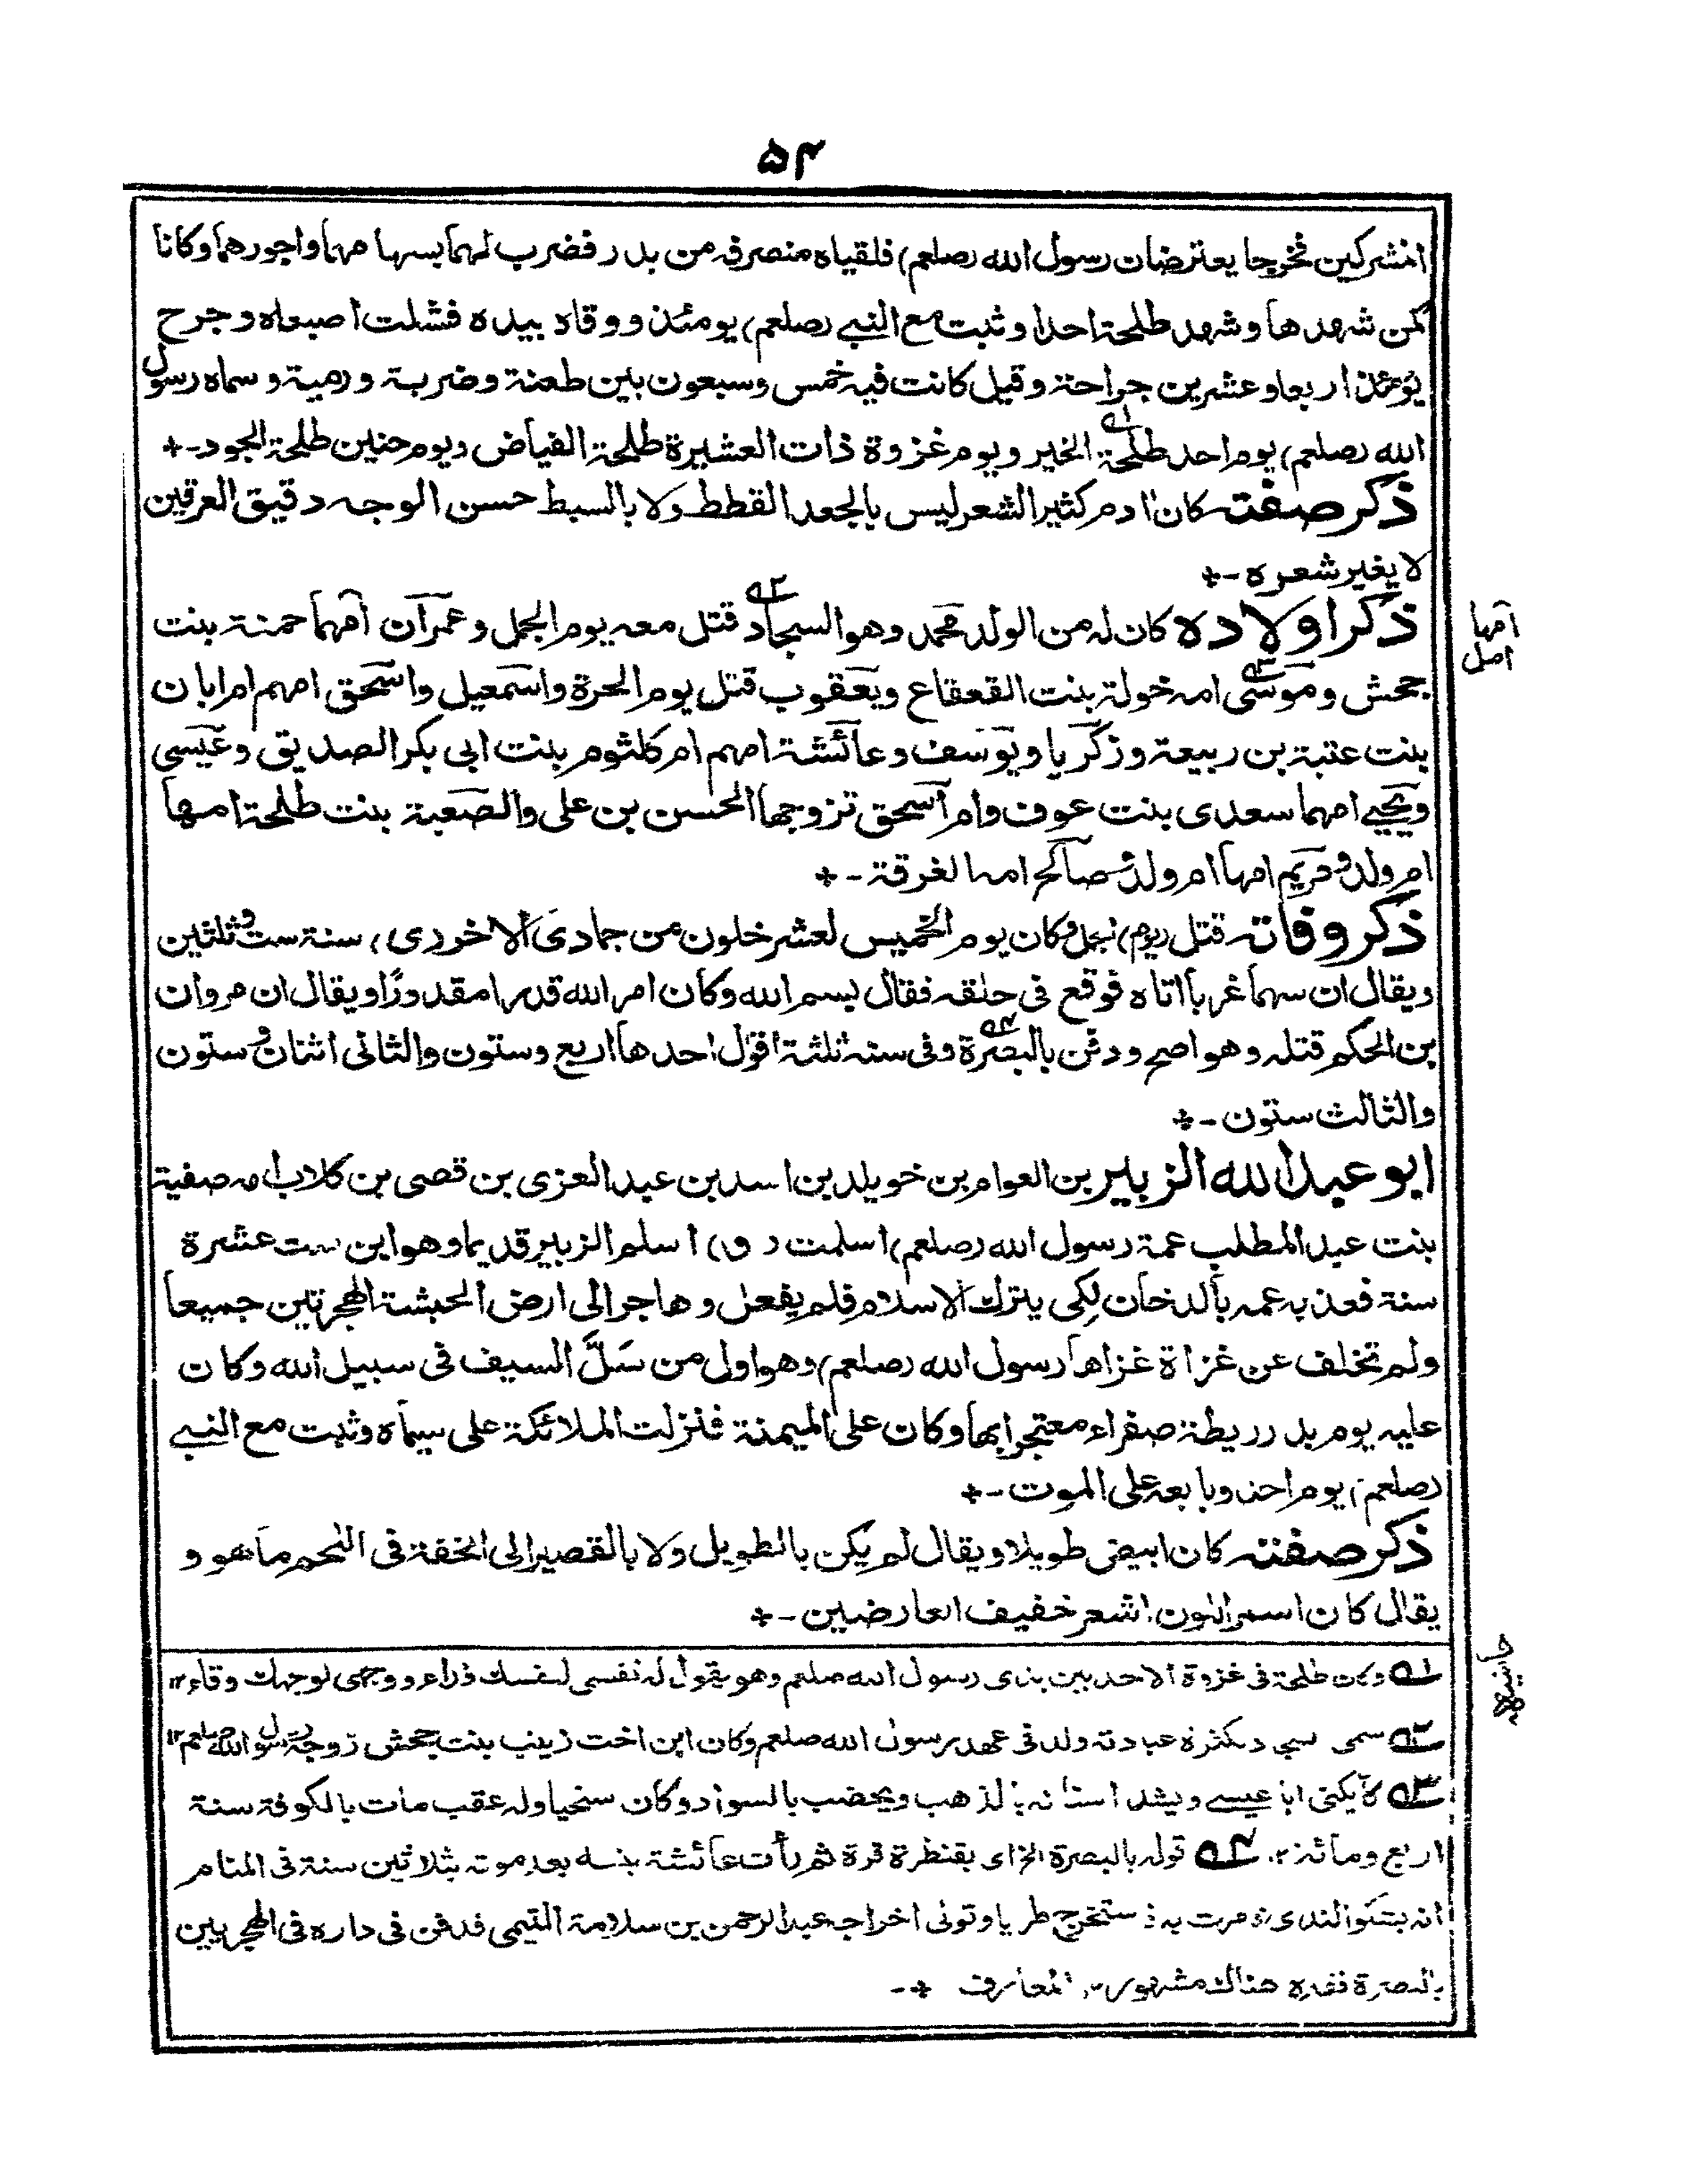 ۵۴
المشركين فخرجا يعترضان رسول الله (صلعم) فلقياه منصرفه من بدر فضرب لهما بسهامهما واجورهما وكانا
كمن شهدها وشهد طلحة احدا وثبت مع النبي (صلعم) يومئذ ووقاه بيده فشلت اصبعاه وجرح
يومئذ اربعا وعشرين جراحة وقيل كانت فيه خمس وسبعون بين طعنة وضربة ورمية وسماه رسول
الله (صلعم) يوم احد طلحة الخير ويوم غزوة ذات العشيرة طلحة الفياض ويوم حنين طلحة الجود -+
ذكر صفته كان ادم كثير الشعر ليس بالجعد القطط ولا بالسبط حسن الوجه دقيق العرقين
لا يغير شعره -+
ذكر اولاده كان له من الولد محمد وهو السجاد قتل معه يوم الجمل وعمران امهما حمنة بنت
امها
اصل
جحش وموسى امه خولة بنت القعقاع ويعقوب قتل يوم الحرة واسمعيل واسحق امهم ام ابان
بنت عتبة بن ربيعة وزكريا ويوسف وعائشة امهم ام كلثوم بنت ابي بكر الصديق وعيسى
ويحيي امهما سعدى بنت عوف وام اسحق تزوجها الحسن بن على والصعبة بنت طلحة امها
ام ولد ومريم امها ام ولد وصالح امه الغرقة -+
ذكر وفاته قتل (يوم) الجمل وكان يوم الخميس لعشر خلون من جمادى الاخر (ى) سنة ست وثلثين
ويقال ان سهما غربا اتاه فوقع فى حلقه فقال بسم الله وكان امر الله قدرا مقدورًا ويقال ان مروان
بن الحكم قتله وهو اصح ودفن بالبصرة وفى سنه ثلثة اقول احدها اربع وستون والثانى اثنان وستون
والثالث ستون -+
ابو عبد الله الزبير بن العوام بن خويلد بن اسد بن عبد العزى بن قصى بن كلاب امه صفية
بنت عبد المطلب عمة رسول الله (صلعم) اسلمت (ق) اسلم الزبير قديما وهو ابن ست عشرة
سنة فعذبه عمه بالدخان لكى يترك الاسلام فلم يفعل وهاجر الى ارض الحبشة الهجرتين جميعا
ولم تخلف عن غزاة غزاها رسول الله (صلعم) وهو اول من سَلَّ السيف فى سبيل الله وكان
عليه يوم بدر ريطة صفراء معتجرا بها وكان على الميمنة فنزلت الملائكة على سيماه وثبت مع النبي
(صلعم) يوم احد وبايعه على الموت -+
ذكر صفته كان ابيض طويلا ويقال لم يكن بالطويل ولا بالقصير الى الخفة فى اللحم ما هو و
يقال كان اسمر اللون اشعر خفيف العارضين -+
حاشيه
١ه وكان طلحة فى غزوة الاحد بين يدى رسول الله صلعم وهو يقول له نفسى لنفسك فداء ووجهى لوجهك وقاء ١٢
٢ه سمى لكثرة عبادته ولد فى عهد رسول الله صلعم وكان ابن اخت زينب بنت جحش زوجة رسول الله صلعم ١٢
٣ه كان يكنى ابا عيسے ويشد اسنانه بالذهب ويخضب بالسواد وكان سخيا وله عقب مات بالكوفة سنة
اربع ومائة ١٢. ٤ه قوله بالبصرة الخ اى بقنطرة قرة ثم رأت عائشة بنته بعد موته بثلاثين سنة فى المنام
انه يشكو الندى فامرت به فاستخرج طريا وتولى اخراجه عبد الرحمن بن سلامة التيمى فدفن فى داره فى الهجريين
بالبصرة فقبره هناك مشهور ١٢ المعارف -+